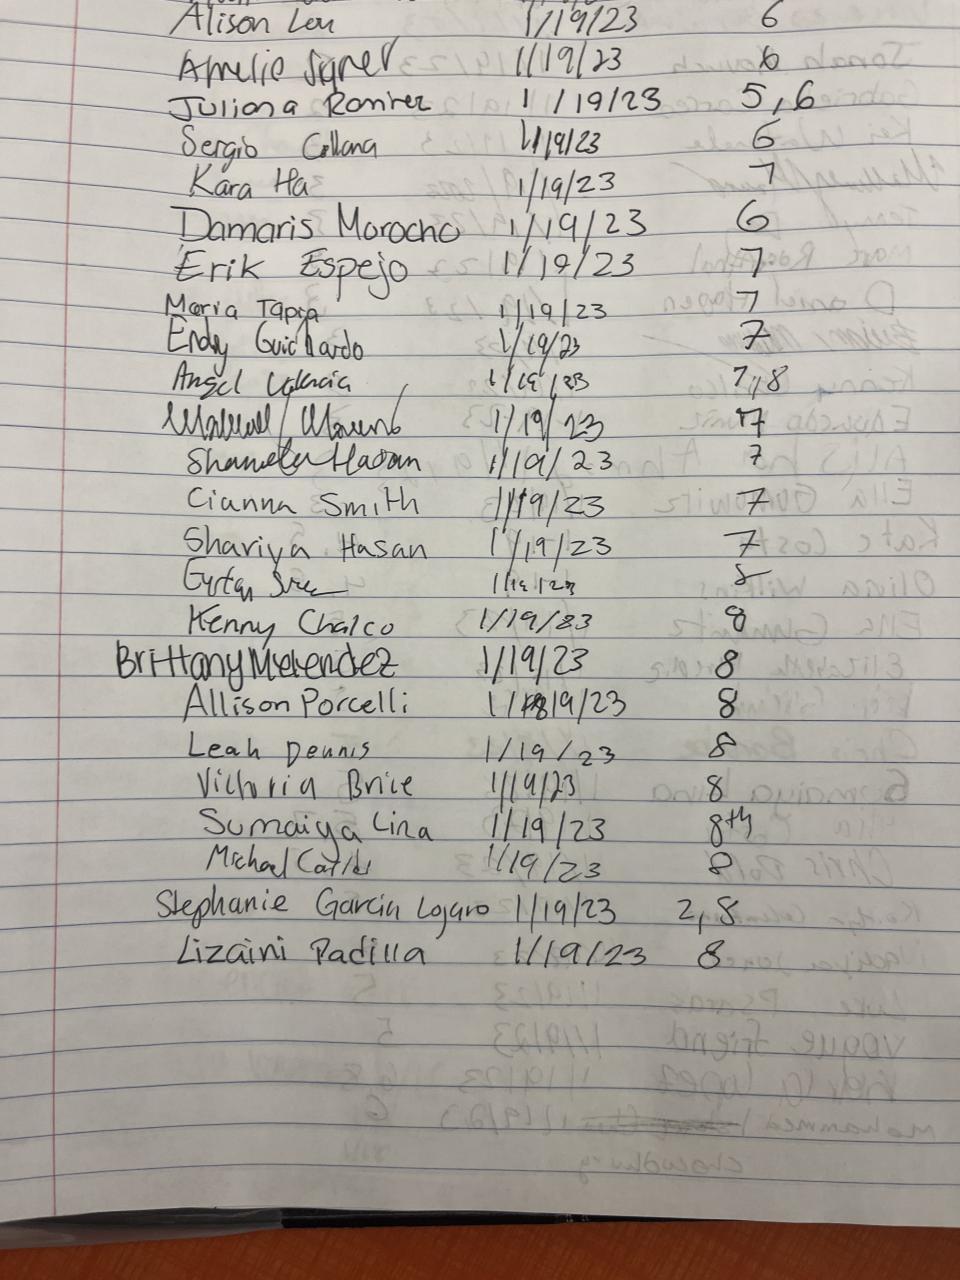 Alison Leu 1/19/23 6
Amelie Signer 1/19/23 6
Juliana Ramirez 1/19/23 5,6
Sergio Collana 1/19/23 6
Kara Ha 1/19/23 7
Damaris Morocho 1/19/23 6
Erik Espejo 1/19/23 7
Maria Tapia 1/19/23 7
Endy Guichardo 1/19/23 7
Angel Valencia 1/19/23 7,8
1/19/23 7
Hasan 1/19/23 7
Cianna Smith 1/19/23 7
Shariya Hasan 1/19/23 7
1/19/23 8
Kenny Chalco 1/19/23 8
Brittany Melendez 1/19/23 8
Allison Porcelli 1/19/23 8
Leah Dennis 1/19/23 8
Victoria Brice 1/19/23 8
Sumaiya Lina 1/19/23 8th
Michael 1/19/23 8
Stephanie Garcia Lojano 1/19/23 2,8
Lizaini Padilla 1/19/23 8